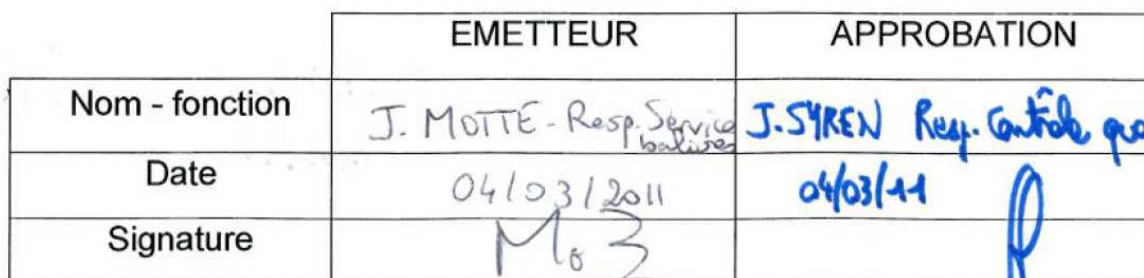 EMETTEUR APPROBATION
Nom - fonction J. MOTTE - Resp. Service J. SYREN Resp. Contrôle
Date 04/03/2011 04/03/11
Signature